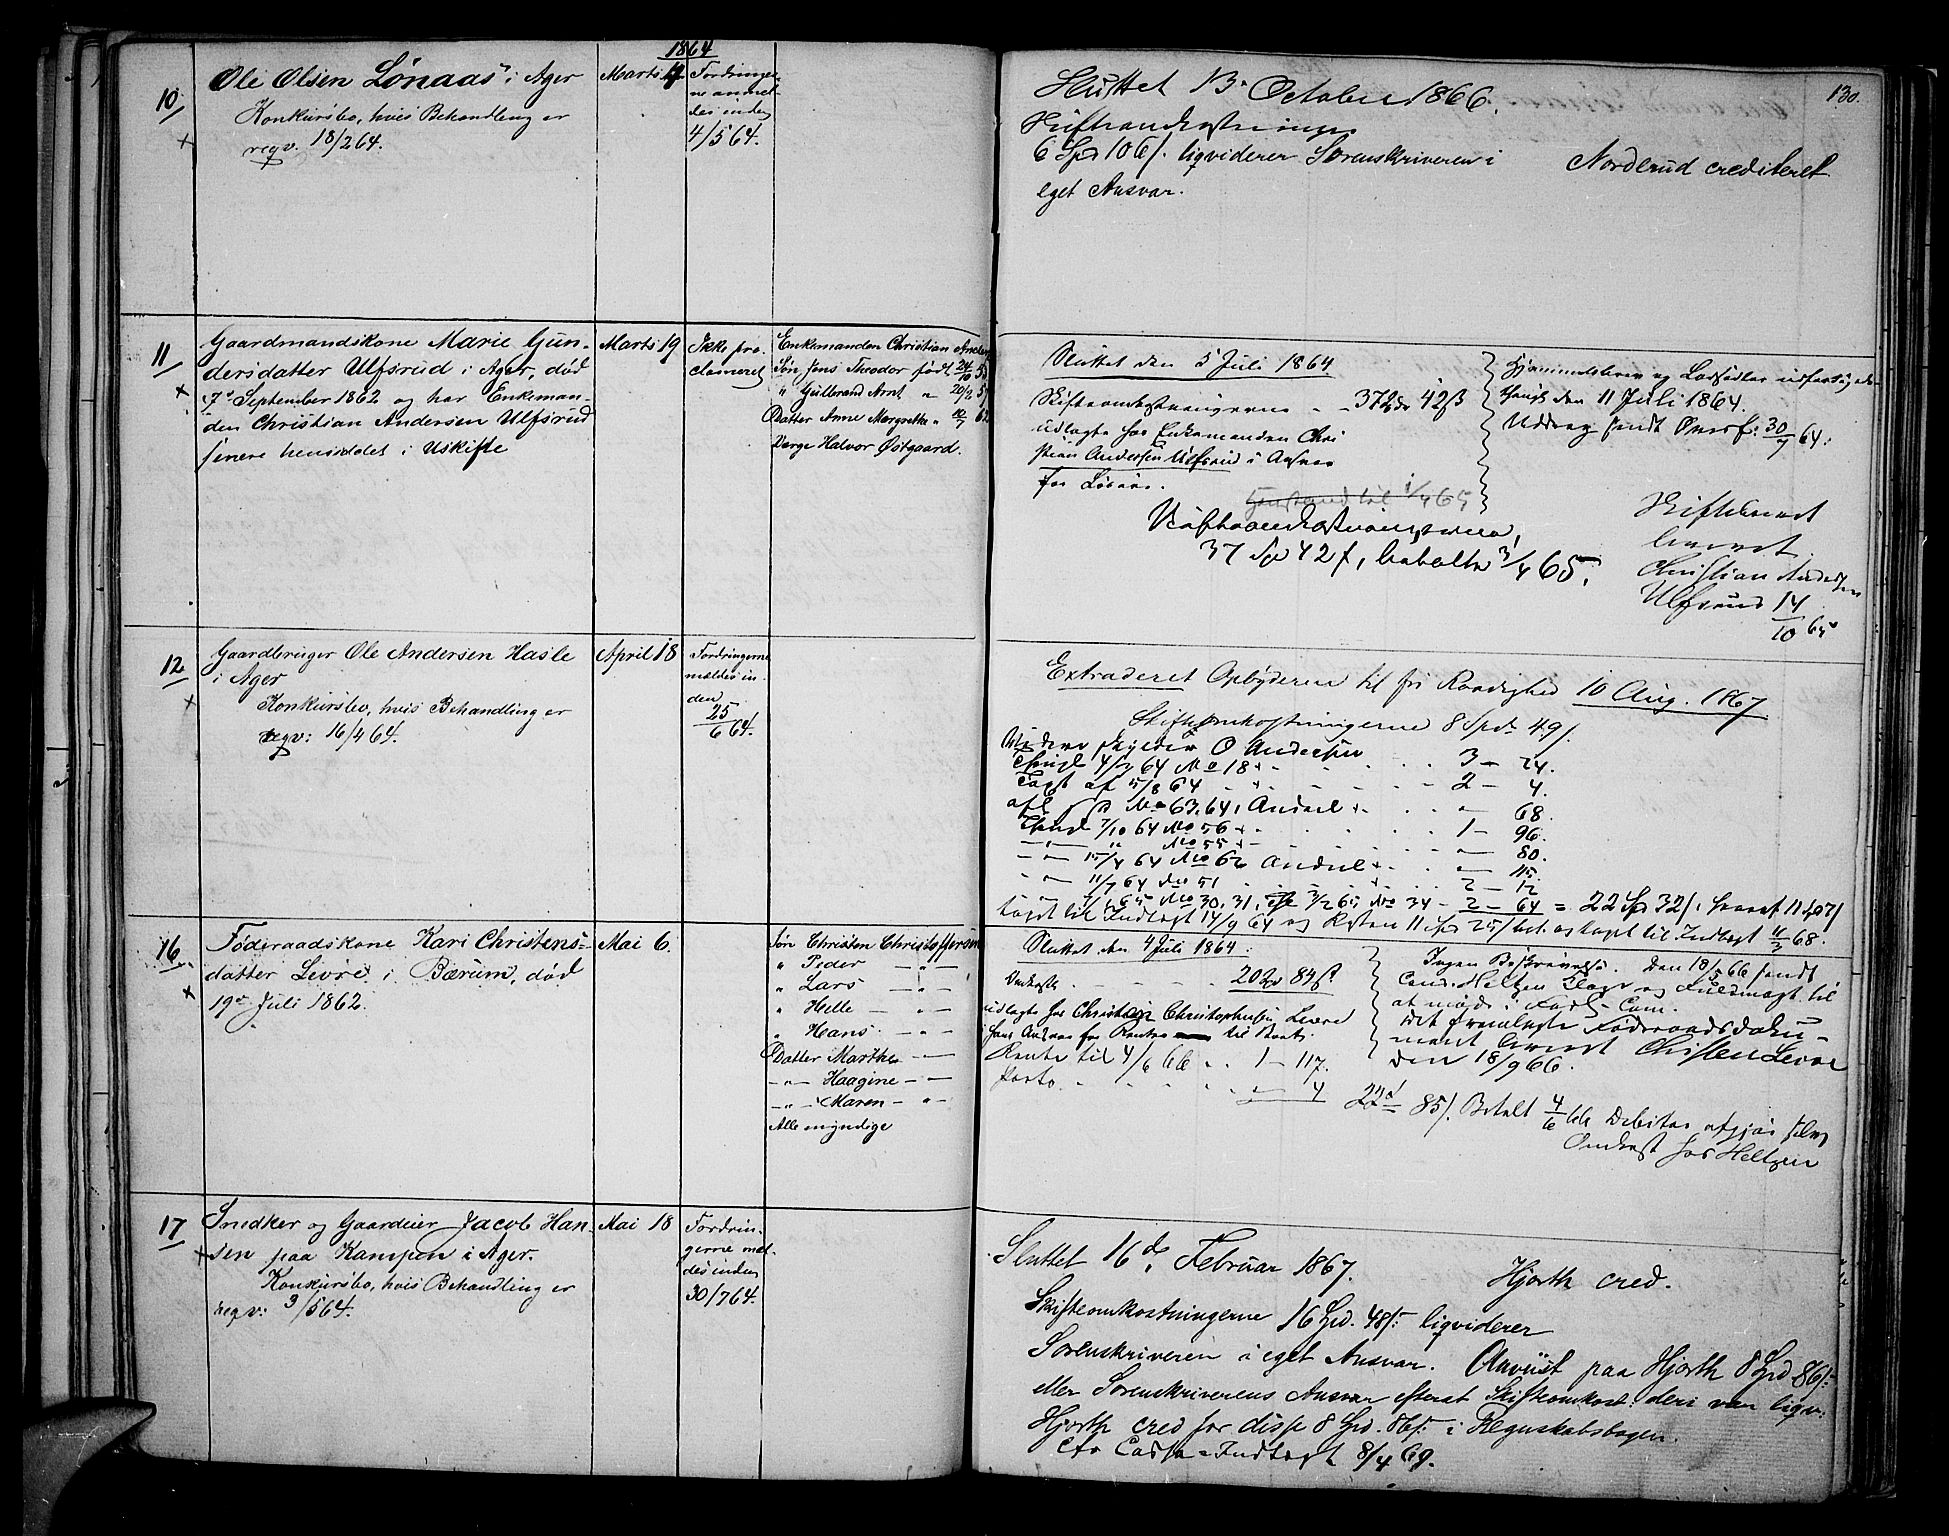 1864
10/
Ole Olsen Lønaas i Ager
Konkursbo, hvis Behandling er
reqv. 18/2 64.
Marts
Fordringer-
ne anmel-
des inden
4/5 64.
Sluttet 13. October 1866.
Skifteomkostninger
6 Spd 106/. liqviderer Sorenskriveren i
eget Ansvar.
Norderud crediteret
130.
11/
Gaardmandskone Marie Gun-
dersdatter Ulfsrud i Ager, død
7de September 1862 og har Enkeman-
den Christian Andersen Ulfsrud
senere hensiddet i Uskifte
Marts 19
Ikke pro-
clameret
Enkemanden Christian Ander
Søn Jens Theodor født
" Gulbrand Arnt "
Datter Anne Margretha "
Værge Halvor Østgaard.
Sluttet den 5 Juli 1864
Skifteomkostningerne 37 42 ß
udlagte hos Enkemanden Chri
stian Andersen Ulfsrud i Ansvar
for
Hjemmelsbrev og Lodsedler udfærdiget
den 11 Juli 1864.
Uddrag sendt 30/7 64.
1/4 65
Skifteomkostningerne,
37 Spd 42 ß, betalte 3/4 65.
Skiftebrevet
leveret
Christian Andersen
Ulfsrud 14/10 65
12
Gaardbruger Ole Andersen Hasle
i Ager
Konkursbo, hvis Behandling er
reqv: 16/4 64.
April 18
Fordringerne
meldes in
den
25/6 64.
Extraderet Opbyderen til fri Raadighed 10 Aug. 1867
Skifteomkostningerne 8 Spd 49/.
Videre skylder O Andersen
4/7 64 No 18 3 - 24.
Tapt af 5/8 64 2 - 4.
No 63, 64, Andeel 68.
7/10 64 No 56 1 - 96.
" No 55 80.
15/4 64 No 62 Andeel 115.
11/7 64 No 51 2 - 12
No 30, 31, 3/2 65 No 34 - 2 - 64 = 22 Spd 32/.
til Indtægt 14/9 64 og Resten 11 Spd 25/ til Indtægt 11/2 68.
16
Føderaadskone Kari Christens-
datter Levre i Bærum, død
19de Juli 1862.
Mai 6.
Søn Christen Christoffersen
" Peder — " —
" Lars — " —
" Helle — " —
" Hans — " —
Datter Marthe —
— " — Haagine — —
— " — Maren — " —
Alle myndige
Sluttet den 4 Juli 1864.
20 84 ß
udlagte hos Christian Christophersen Levre
i hans Ansvar for Renter til
Rente til 4/6 66 1 - 117.
Porto 4
Ingen Beskrivelse. Den 18/5 66 sendt
Cand. Heltzen Klage og Fuldmagt til
at møde i Forl. Com.
Det fremlagte Føderaadsdoku-
ment leveret Christen Levre
den 18/9 66.
22 85/. Betalt 4/6 66 Debitor afgjør selv
Omkost hos Heltzen
17
Snedker og Gaardeier Jacob Han-
sen paa Kampen i Ager.
Konkursbo, hvis Behandling er
reqv: 3/5 64.
Mai 18
Fordrin-
gerne mel-
des inden
30/7 64.
Sluttet 16de Februar 1867.
Hjorth cred.
Skifteomkostningerne 16 Spd. 48/: liqviderer
Sorenskriveren i eget Ansvar. Anviist paa Hjorth 8 Spd 86/:
eller Sorenskriverens Ansvar efterat Skifteomkost: deri var liqv:
Hjorth cred for disse 8 Spd. 86/: i Regnskabsbogen.
Cfr Cassa-Indtægt 8/4 69.